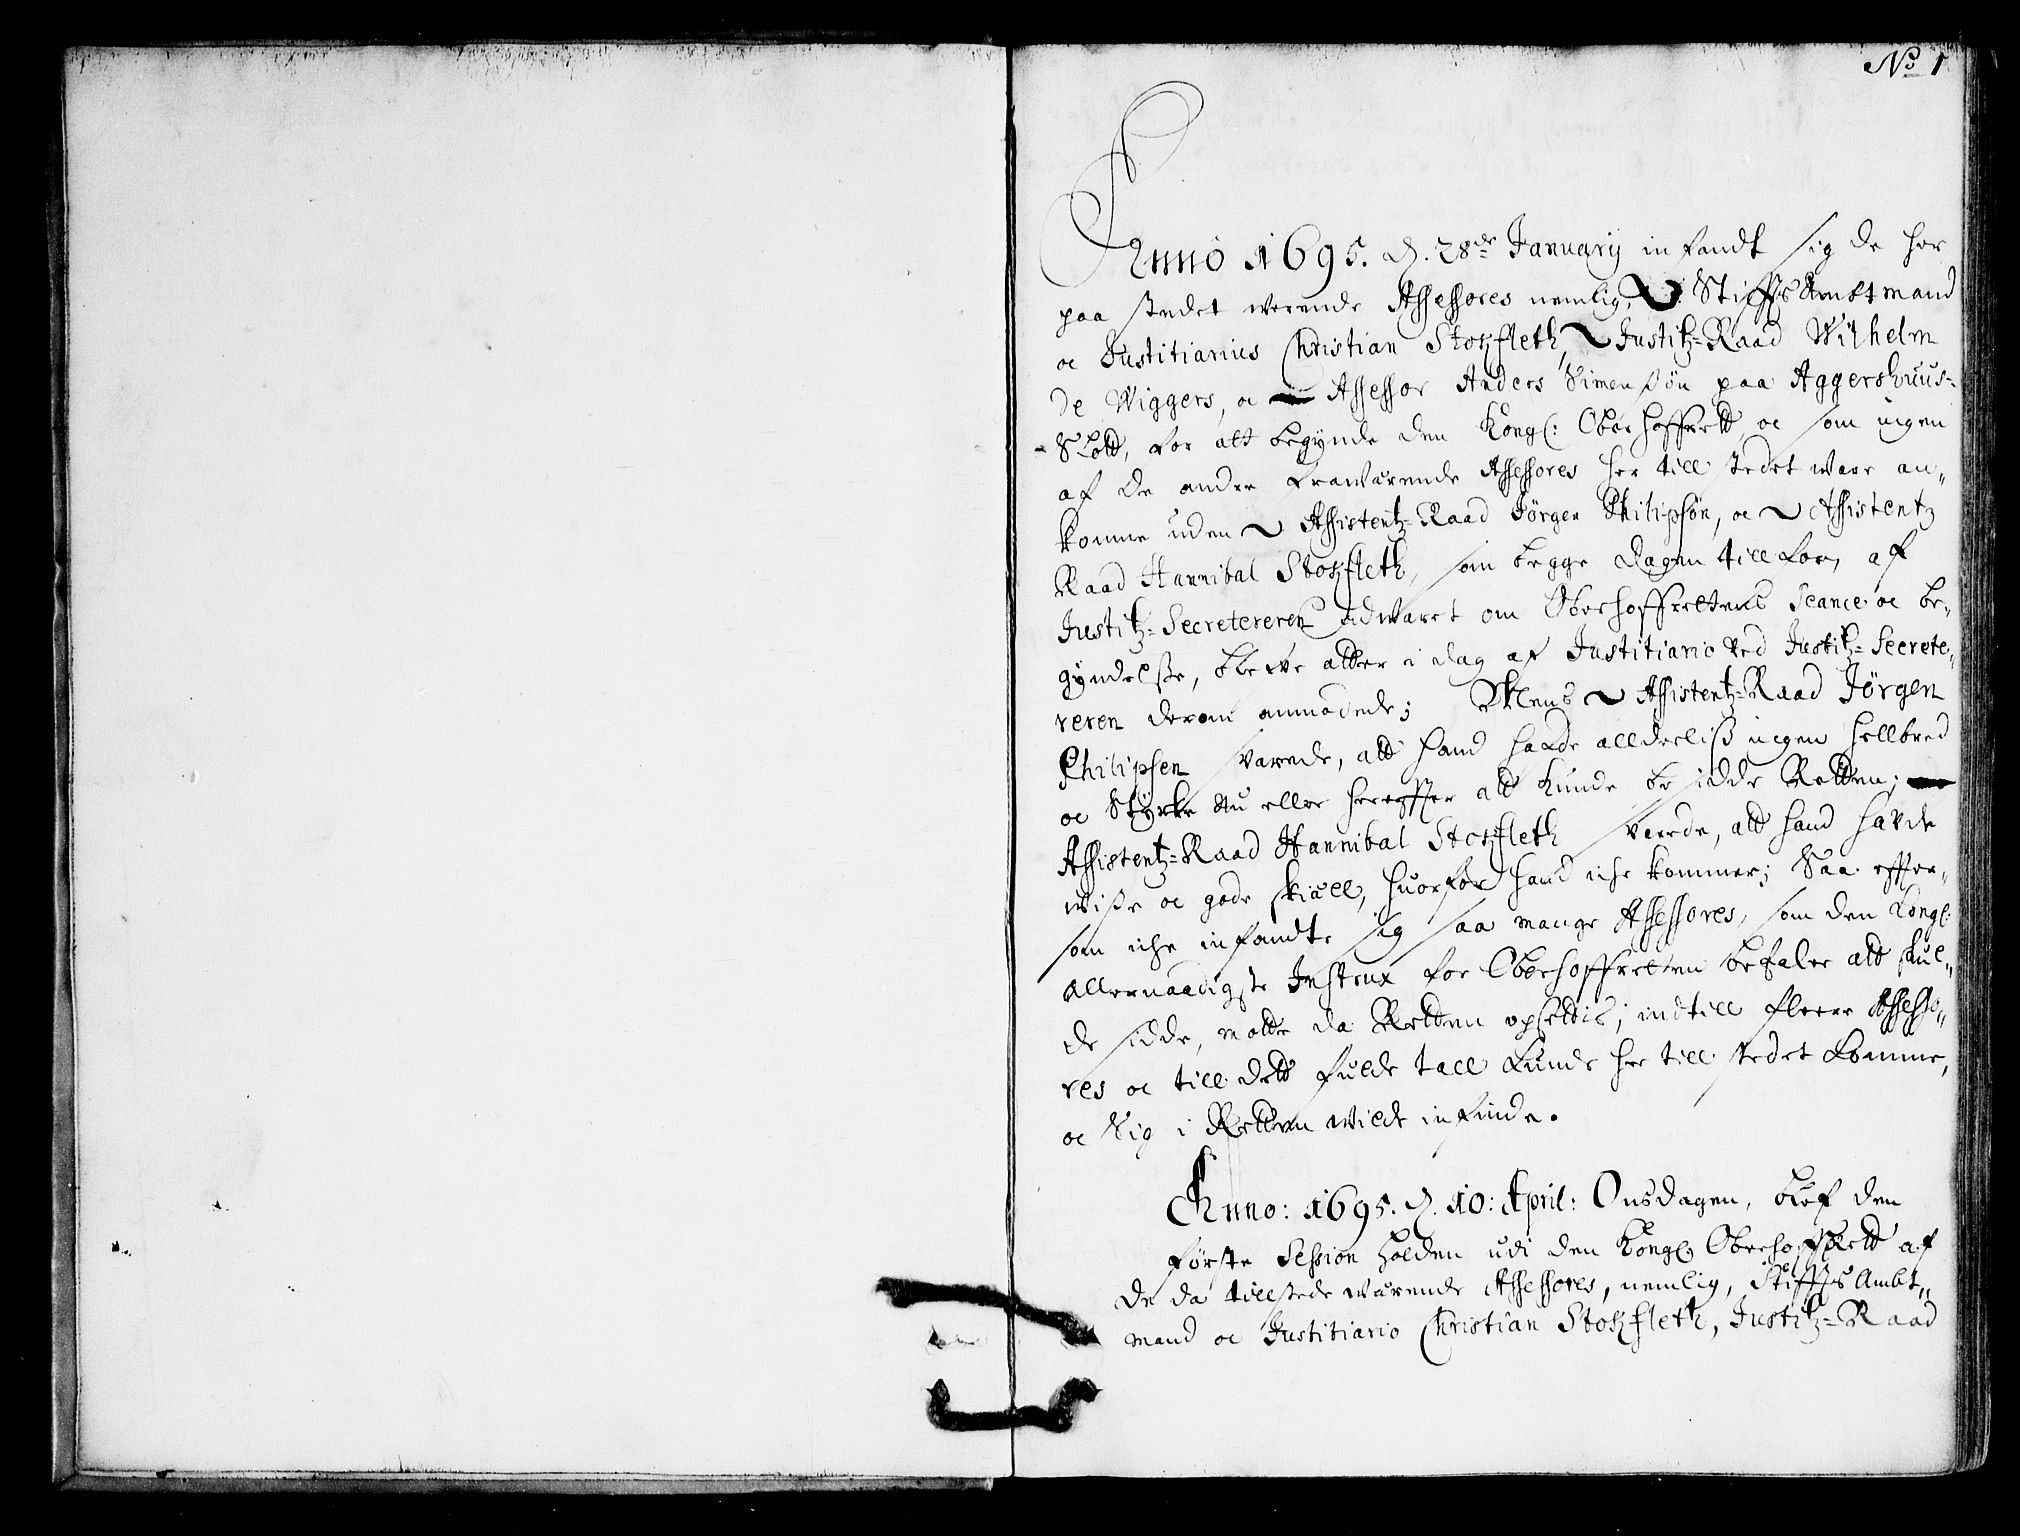 No 1
Anno 1695. d. 28de January infandt sig de her
paa stedet werende Assessores nemlig, Stiffts Ambtmand
oc Justitiarius Christian Stokfleth, Justitz-Raad Wilhelm
de Wiggers, oc Assessor Anders Simensøn paa Aggershuus-
Slott, for att begynde den Kongl: Oberhoffrett, oc som ingen
af de andre frawærende Assessores her till stedet ware an„
komne uden Assistentz-Raad Jørgen Philipsøn, oc Assistentz
Raad Hannibal Stokfleth, som begge dagen tillforn af
Justitz-Secretereren adwaret om Oberhoffrettens Seance oc be„
gyndelsse, blefve atter i dag af Justitiario ved Justitz-Secrete„
reren derom anmodede; Mens Assistentz-Raad Jørgen
Philipsen svarede, att hand hafde alldeeliss ingen hellbred
oc Styrke nu eller herefter att kunde besidde Retten;
Assistentz-Raad Hannibal Stokfleth svarede, att hand hafde
wisse oc gode skiæll, huorfor hand iche kommer; Saa effter„
som iche infandte sig saa mange Assessores, som den Kongl:
allernaadigste Instrux for Oberhoffretten befaler att skul„
de sidde, motte da Retten opsettis, indtill fleere Assesso„
res oc till dett fulde tall kunde her till stedet komme,
oc Sig i Retten wilde infinde.
Anno: 1695. d. 10: April: Onsdagen, blef den
første Session holden udi den Kongl: Oberhoffrett af
de da tillstede wærende Assessores, nemlig, Stiffts Ambt„
mand oc Justitiario Christian Stokfleth, Justitz-Raad